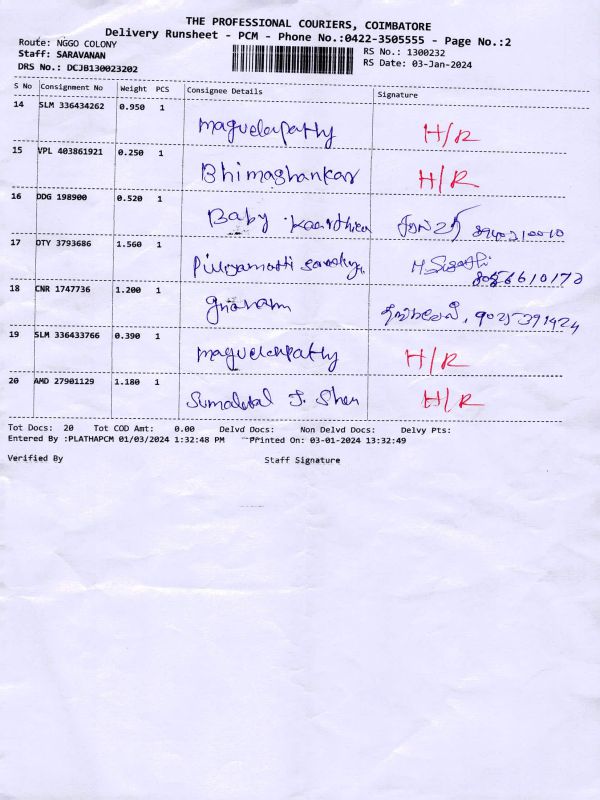 THE PROFESSIONAL COURIERS, COIMBATORE
Delivery Runsheet - PCM - Phone No.:0422-3505555 - Page No.:2
Route: NGGO COLONY
RS No.: 1300232
Staff: SARAVANAN
RS Date: 03-Jan-2024
DRS No.: DCJB130023202
S No Consignment No Weight PCS Consignee Details Signature
14 SLM 336434262 0.950 1 H/R
15 VPL 403861921 0.250 1 Bhimashankar H/R
16 DDG 198900 0.520 1 Baby 8940210010
17 OTY 3793686 1.560 1
18 CNR 1747736 1.200 1 Gnanam 9025391424
19 SLM 336433766 0.390 1 H/R
20 AMD 27901129 1.180 1 H/R
Tot Docs: 20 Tot COD Amt: 0.00 Delvd Docs: Non Delvd Docs: Delvy Pts:
Entered By :PLATHAPCM 01/03/2024 1:32:48 PM Printed On: 03-01-2024 13:32:49
Verified By Staff Signature